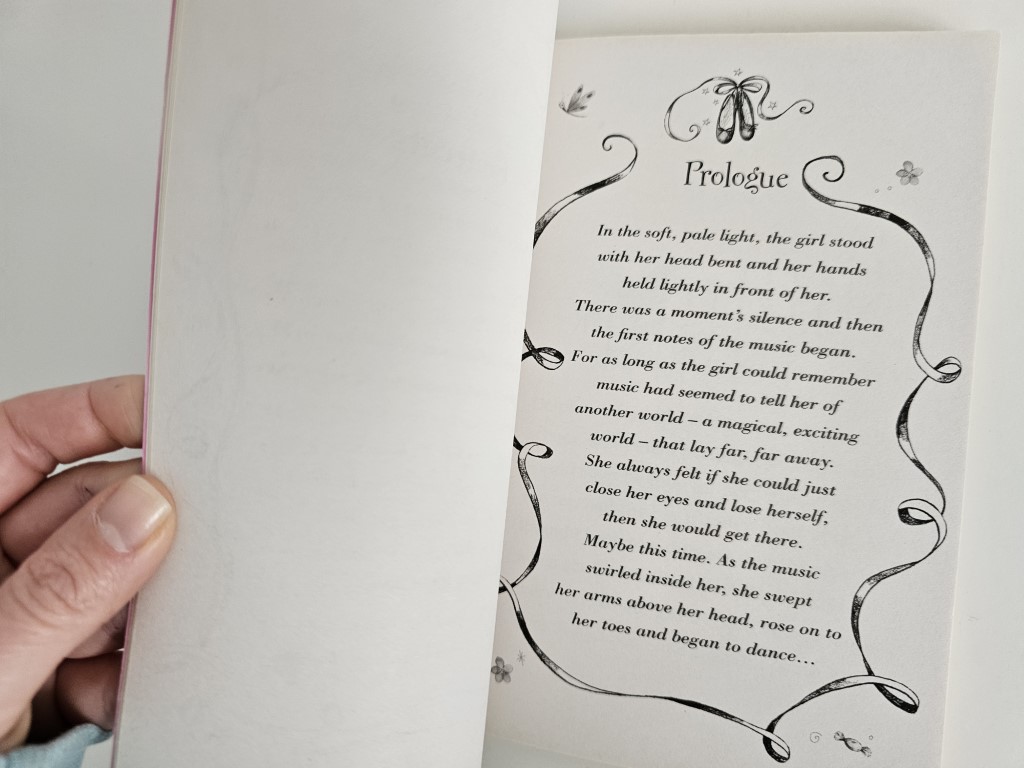 Prologue
In the soft, pale light, the girl stood
with her head bent and her hands
held lightly in front of her.
There was a moment's silence and then
the first notes of the music began.
For as long as the girl could remember
music had seemed to tell her of
another world – a magical, exciting
world – that lay far, far away.
She always felt if she could just
close her eyes and lose herself,
then she would get there.
Maybe this time. As the music
swirled inside her, she swept
her arms above her head, rose on to
her toes and began to dance…